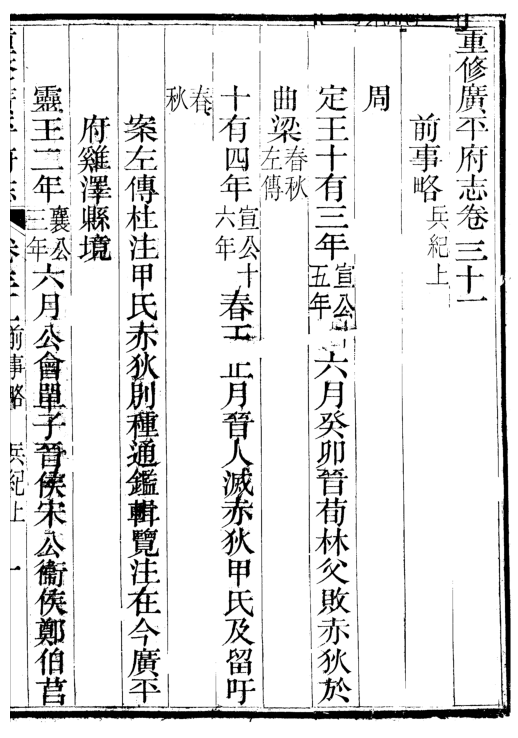 重修廣平府志卷三十一
前事略兵紀上
周
定王十有三年宣公十五年六月癸卯晉荀林父敗赤狄於
曲梁春秋左傳
十有四年宣公十六年春王正月晉人滅赤狄甲氏及留吁
春秋
案左傳杜注甲氏赤狄別種通鑑輯覽注在今廣平
府雞澤縣境
靈王二年襄公三年六月公會單子晉侯宋公衞侯鄭伯莒
卷三十一前事略 兵紀上 一